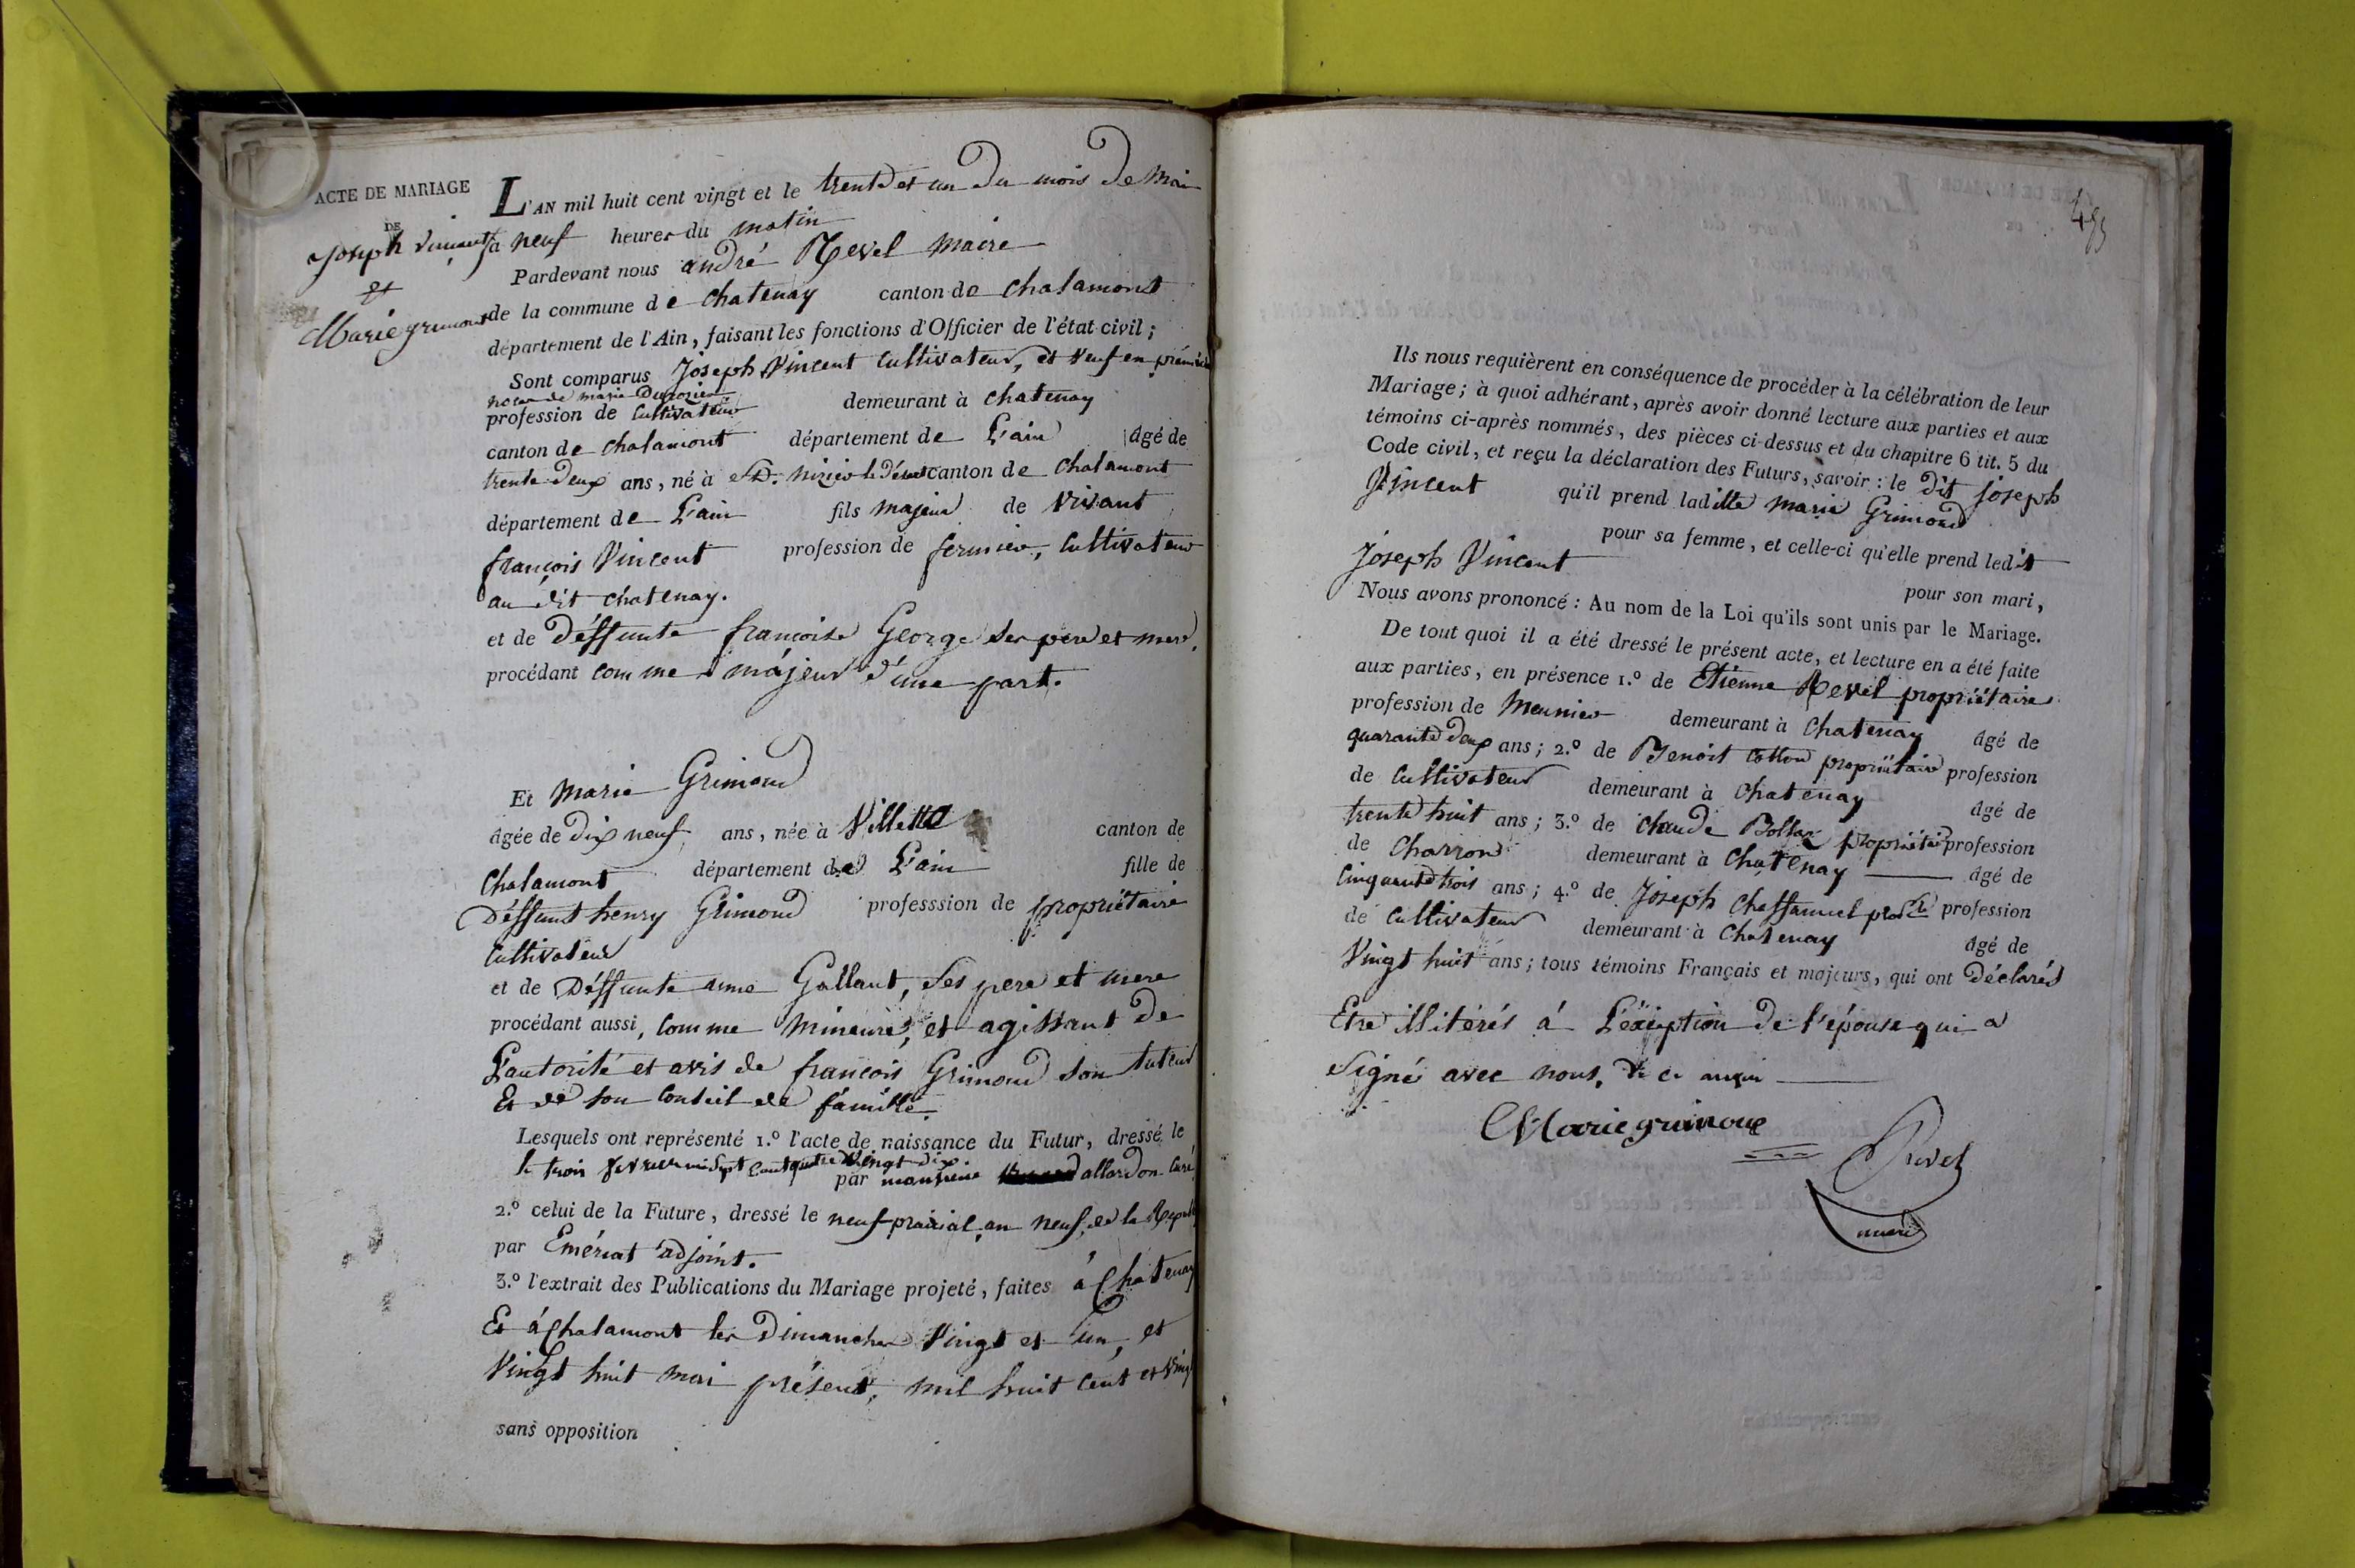 ACTE DE MARIAGE
DE
Joseph Vincent
et
Marie grimond
L'AN mil huit cent vingt et le trente et un du mois de Mai
à neuf heures du matin
Pardevant nous andré Revel Maire
de la commune de Chatenay canton de Chalamont
département de l'Ain, faisant les fonctions d'Officier de l'état civil;
Sont comparus Joseph Vincent Cultivateur, et Veuf en premiere
noce de marie
profession de Cultivateur demeurant à Chatenay
canton de Chalamont département de L'ain âgé de
trente deux ans, né à St. nizier le désert canton de Chalamont
département de L'ain fils majeur de Vivant
françois Vincent profession de fermier, Cultivateur
au dit Chatenay.
et de Déffunte françoise George Ses pere et mere,
procédant comme majeur d'une part.
Et Marie Grimond
âgée de dix neuf ans, née à Villette canton de
Chalamont département de L'ain fille de
Déffunt henry Grimond professsion de propriétaire
Cultivateur
et de Déffunte anne Gallant, Ses pere et mere
procédant aussi, Comme Mineure, et agissant de
L'autorité et avis de françois Grimond Son tuteur
Et de Son Conseil de famille
Lesquels ont représenté 1.º l'acte de naissance du Futur, dressé le
le trois fevrier mil sept cent quatre Vingt dix
par monsieur allardon Curé
2.º celui de la Future, dressé le neuf prairial, an neuf, de la Repub
par Emériat adjoint.
3.º l'extrait des Publications du Mariage projeté, faites à Chatenay
Et à Chalamont les Dimanches Vingt et un, et
Vingt huit mai présent, mil huit cent et Vingt
sans opposition
Ils nous requièrent en conséquence de procéder à la célébration de leur
Mariage; à quoi adhérant, après avoir donné lecture aux parties et aux
témoins ci-après nommés, des pièces ci-dessus et du chapitre 6 tit. 5 du
Code civil, et reçu la déclaration des Futurs, savoir : le dit joseph
Vincent qu'il prend laditte Marie Grimond
pour sa femme, et celle-ci qu'elle prend ledit
Joseph Vincent pour son mari,
Nous avons prononcé : Au nom de la Loi qu'ils sont unis par le Mariage.
De tout quoi il a été dressé le présent acte, et lecture en a été faite
aux parties, en présence 1.º de Etienne Revel propriétaire
profession de Meunier demeurant à Chatenay âgé de
quarante deux ans; 2.º de Benoit Cotton propriétaire profession
de Cultivateur demeurant à Chatenay âgé de
trente huit ans; 3.º de Claude propriétaire profession
de Charron demeurant à Chatenay âgé de
Cinquante trois ans; 4.º de Joseph profession
de Cultivateur demeurant à Chatenay âgé de
Vingt huit ans; tous témoins Français et majeurs, qui ont Déclarés
Etre illitérés à L'exception de l'épouse qui a
Signé avec nous,
Marie grimond
Revel
maire